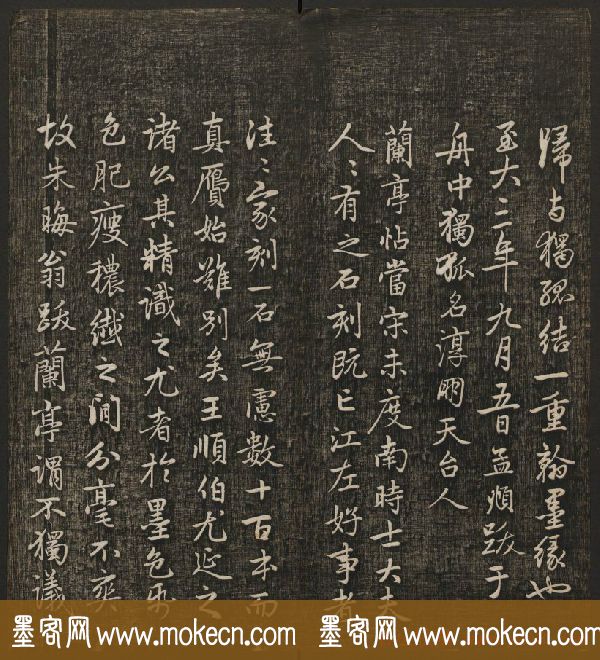 歸當獨孤結一重翰墨緣也
至大三年九月五日孟頫跋于
舟中獨孤名淳朋天台人
蘭亭帖當宋未度南時士大夫
人〻有之石刻既亡江左好事者
往〻家刻一石無慮數十百本而
真贋始難別矣王順伯尤延之
諸公其精識之尤者於墨色
色肥瘦穠纖之間分毫不爽
故朱晦翁跋蘭亭謂不獨議
墨客网 www.mokecn.com 墨客网 www.mokecn.com